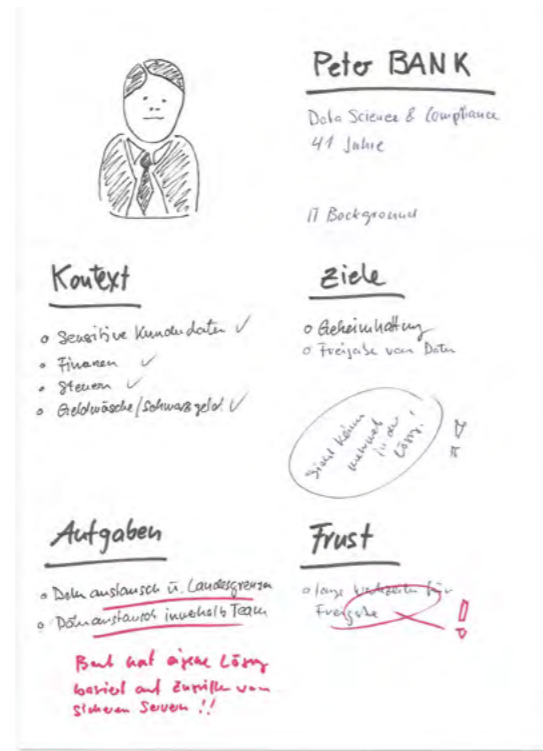 Peter BANK
Data Science & Compliance
41 Jahre
IT Background
Kontext
o Sensitive Kundendaten ✓
o Finanzen ✓
o Steuern ✓
o Geldwäsche/Schwarzgeld ✓
Ziele
o Geheimhaltung
o Freigabe von Daten
Sieht keinen
mehrwert
in der
Lösung!
Aufgaben
o Datenaustausch ü. Landesgrenzen
o Datenaustausch innerhalb Team
Bank hat eigene Lösung
basiert auf Zugriffen von
sicheren Servern !!
Frust
o lange Wartezeiten für
Freigabe